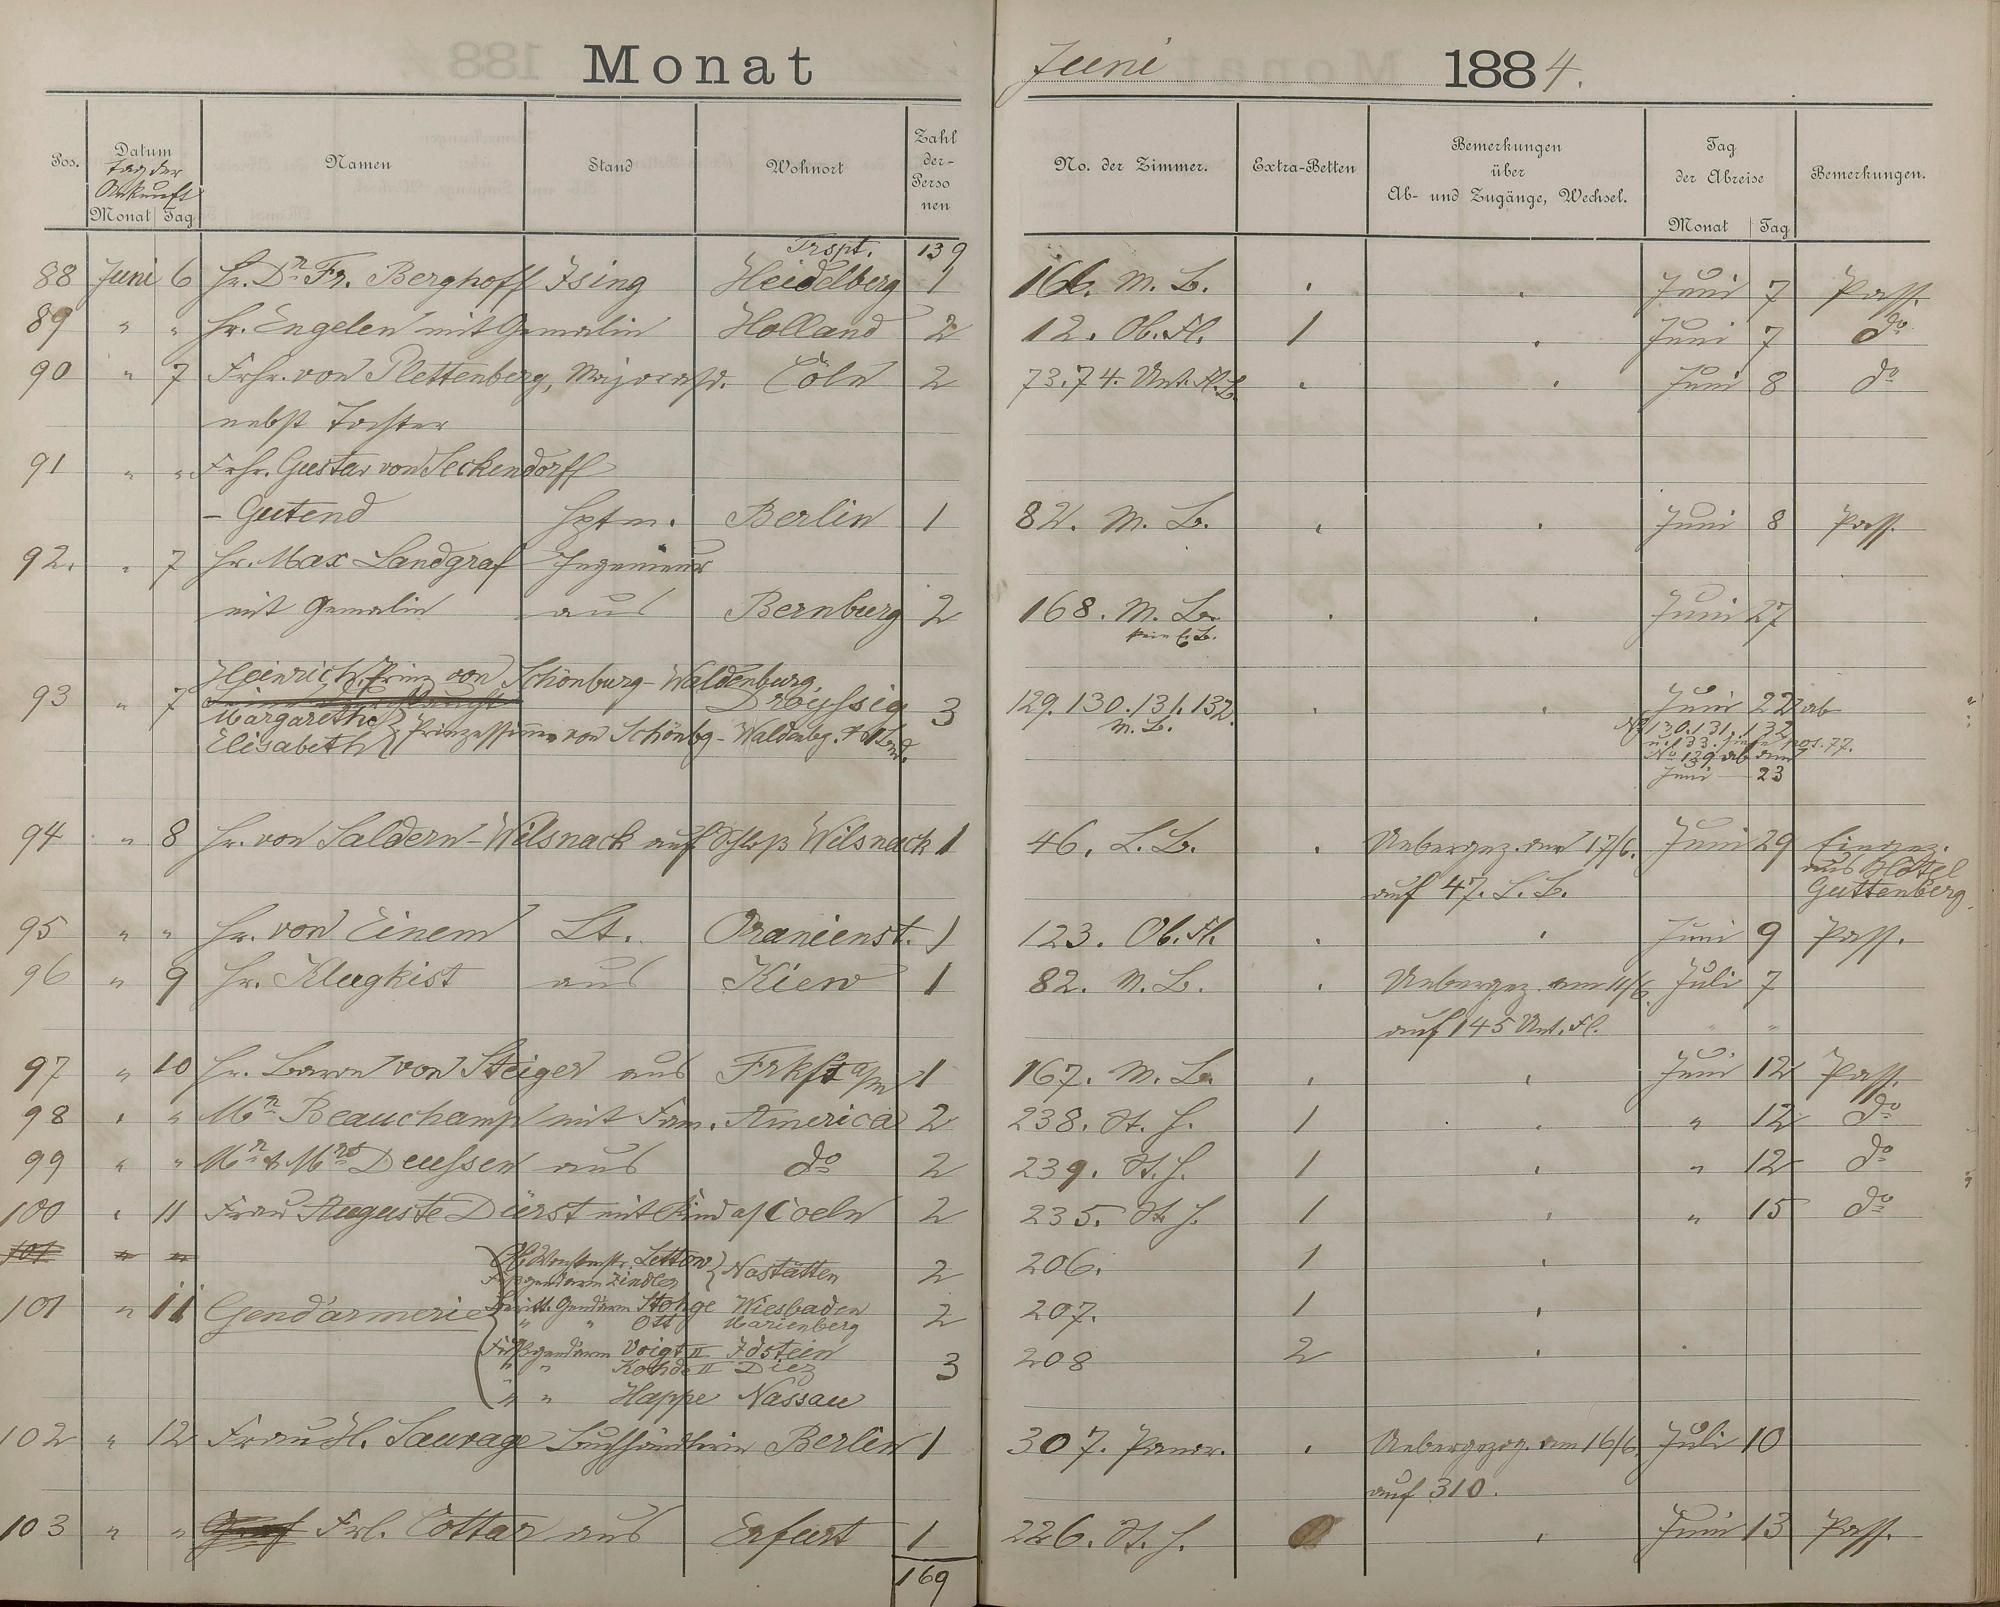 Monat Juni 1884.
Pos. Datum Tag der Ankunft Monat Tag Namen Stand Wohnort Zahl der Personen No. der Zimmer. Extra-Betten Bemerkungen über Ab- und Zugänge, Wechsel. Tag der Abreise Monat Tag Bemerkungen.
Trspt. 139
88 Juni 6 Hr. Dr. Fr. Berghoff Ising Heidelberg 1 166. M. B. Juni 7 Pass.
89 " " Hr. Engelen mit Gemalin Holland 2 12. Ob. Fl. 1 Juni 7 do
90 " 7 Frhr. von Plettenberg, Major a/D. Cöln 2 73.74. Unt. Fl. B. Juni 8 do
nebst Tochter
91 " " Frhr. Gustav von Seckendorff
- Gutend Hptm. Berlin 1 82. M. B. Juni 8 Pass.
92. " 7 Hr. Max Landgraf Ingenieur
mit Gemalin aus Bernburg 2 168. M. B. Juni 27
kein E. B.
Heinrich, Prinz von Schönburg-Waldenburg
93 " 7 Droyssig 3 129. 130. 131. 132. Juni 22 ab
Margarethe M. B. No 130. 131. 132
Elisabeth } Prinzessinnen von Schönbg-Waldenbg. u. 133. siehe pos. 77.
No 129 ab am
Juni 23
94 " 8 Hr. von Saldern-Wilsnack auf Schloß Wilsnack 1 46. L. B. Uebergez. am 17/6. Juni 29 Eingez.
aus Hôtel
auf 47. L. B. Guttenberg.
95 " " Hr. von Einem Lt. Oranienst. 1 123. Ob. Fl. Juni 9 Pass.
96 " 9 Hr. Klugkist aus Kiew 1 82. M. B. Uebergez. am 11/6. Juli 7
auf 145 Unt. Fl. " "
97 " 10 Hr. Baron von Steiger aus Frkft a/m 1 167. M. B. Juni 12 Pass.
98 " " Mr. Beauchamp mit Fam. America 2 238. St. H. 1 " 12 do
99 " " Mr. & Mrs. Deussen aus do 2 239. St. H. 1 " 12 do
100 " 11 Frau Auguste Dürst mit Kind a/ Coeln 2 235. St. H. 1 " 15 do
101 " " Lettow } Nastätten 2 206. 1
Fußgendarm Zindler
101 " 11 Gendarmerie Beritt. Gendarm Stohge Wiesbaden 2 207. 1
" " Ott Marienberg
Fußgendarm Voigt II Idstein 3 208 2
" " Kohde II Diez
" " Happe Nassau
102 " 12 Frau H. Sauvage Buchhändlerin Berlin 1 307. Panor. Uebergezog. am 16/6 Juli 10
auf 310.
103 " " Frl. Cottar aus Erfurt 1 226. St. H. Juni 13 Pass.
169